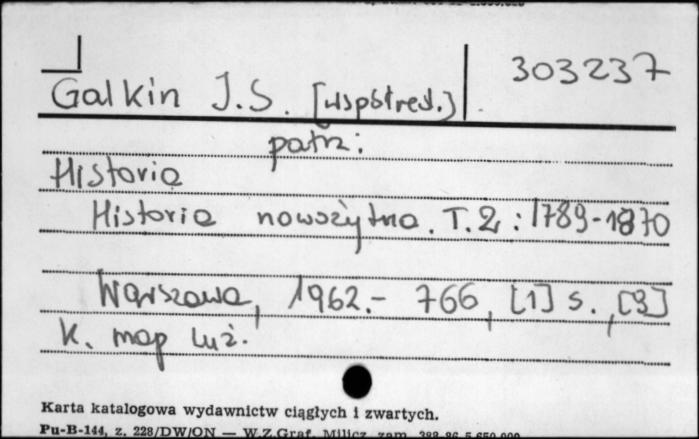 303237
Galkin J.S. [współred.]
patrz:
Historia
Historia nowożytna. T. 2: 1789-1870
Warszawa, 1962.- 766, [1] s., [3]
k. map luź.
Karta katalogowa wydawnictw ciągłych i zwartych.
Pu-B-144, z. 228/DW/ON — W.Z.Graf. Milicz, zam.